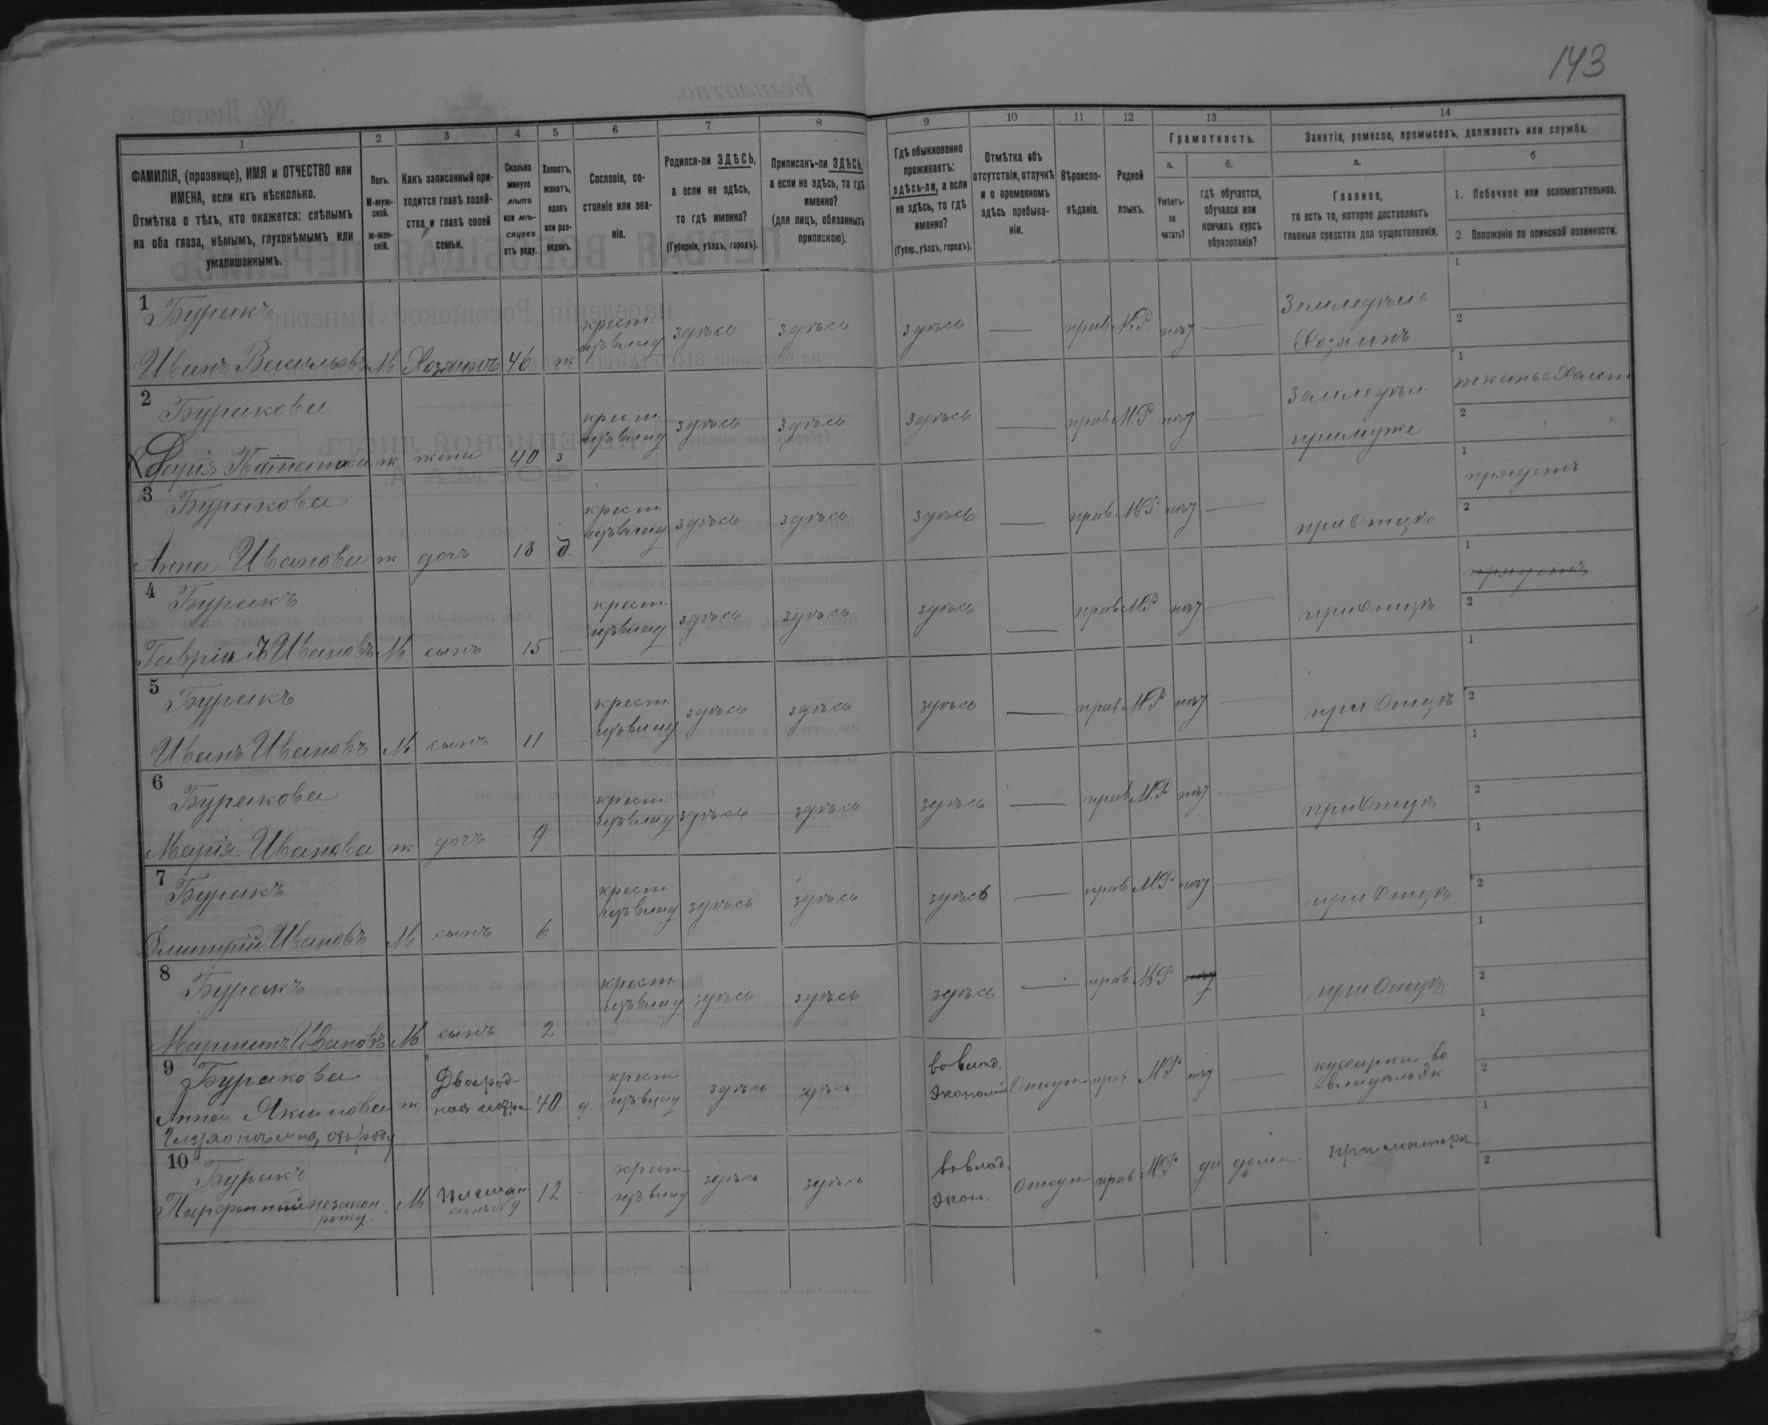 143
1
2
3
4
5
6
7
8
9
10
11
12
13
14
ФАМИЛІЯ, (прозвище), ИМЯ и ОТЧЕСТВО или
ИМЕНА, если ихъ нѣсколько.
Отмѣтка о тѣхъ, кто окажется: слѣпымъ
на оба глаза, нѣмымъ, глухонѣмымъ или
умалишеннымъ.
Полъ.
М-муж-
ской.
ж-жен-
скій.
Какъ записанный при-
ходится главѣ хозяй-
ства и главѣ своей
семьи.
Сколько
минуло
лѣтъ
или мѣ-
сяцевъ
отъ роду.
Холостъ,
женатъ,
вдовъ
или раз-
веденъ.
Сословіе, со-
стояніе или зва-
ніе.
Родился-ли ЗДѢСЬ,
а если не здѣсь,
то гдѣ именно?
(Губернія, уѣздъ, городъ).
Приписанъ-ли ЗДѢСЬ,
а если не здѣсь, то гдѣ
именно?
(для лицъ, обязанныхъ
припискою).
Гдѣ обыкновенно
проживаетъ:
здѣсь-ли, а если
не здѣсь, то гдѣ
именно?
(Губер., уѣздъ, городъ).
Отмѣтка объ
отсутствіи, отлучкѣ
и о временномъ
здѣсь пребыва-
ніи.
Вѣроиспо-
вѣданіе.
Родной
языкъ.
Грамотность.
а.
б.
Умѣетъ-
ли
читать?
гдѣ обучается,
обучался или
кончилъ курсъ
образованія?
Занятіе, ремесло, промыселъ, должность или служба.
а.
б
Главное,
то есть то, которое доставляетъ
главныя средства для существованія.
1. Побочное или вспомогательное.
2. Положеніе по воинской повинности.
1 Буракъ
Иванъ Васильевъ М Хозяинъ 46 ж крест. здѣсь здѣсь здѣсь — прав М.Р. — Земледѣль Хозяинъ 1 2
2 Буракова
жена 40 з крест. здѣсь здѣсь здѣсь — прав М.Р — Земледѣл. при муже 1 2
3 Буракова
Анна Иванова ж дочъ 18 д крест. здѣсь здѣсь здѣсь — прав М.Р — при Отцѣ 1 прядетъ 2
4 Буракъ
Гавріилъ Ивановъ М сынъ 15 — крест. здѣсь здѣсь здѣсь — прав М.Р — при Отцѣ 1 2
5 Буракъ
Иванъ Ивановъ М сынъ 11 крест. здѣсь здѣсь здѣсь — прав М.Р — при Отцѣ 1 2
6 Буракова
Марія Иванова ж дочъ 9 крест. здѣсь здѣсь здѣсь — прав М.Р — при Отцѣ 1 2
7 Буракъ
Дмитрій Ивановъ М сынъ 6 крест. здѣсь здѣсь здѣсь — прав М.Р — при Отцѣ 1 2
8 Буракъ
Мартинъ Ивановъ М сынъ 2 крест. здѣсь здѣсь здѣсь — прав М.Р — при Отцѣ 1 2
9 Буракова
Анна Акимова ж Двоюрод- 40 крест здѣсь здѣсь во влад. Экономіи Отсут прав М.Р — кухарка во 1 2
10 Буракъ
Парфентій незакон. М племян 12 — крест здѣсь здѣсь во влад. Экон. Отсут прав М.Р да дома при матери 1 2